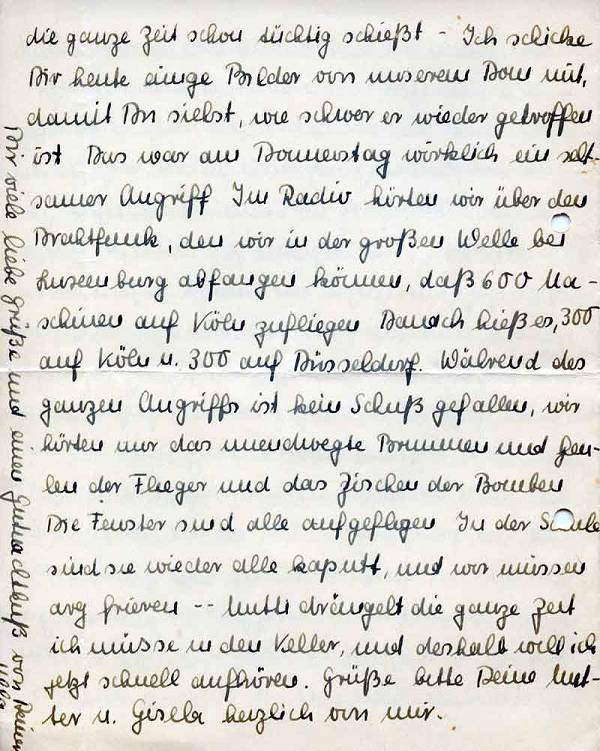 die ganze Zeit schon tüchtig schießt - Ich schicke
Dir heute einige Bilder von unserem Dom mit,
damit Du siehst, wie schwer er wieder getroffen
ist Das war am Donnerstag wirklich ein selt-
samer Angriff Im Radio hörten wir über den
Drahtfunk, den wir in der großen Welle bei
Luxemburg abfangen können, daß 600 Ma-
schinen auf Köln zufliegen Danach hieß es, 300
auf Köln u. 300 auf Düsseldorf. Während des
ganzen Angriffs ist kein Schuß gefallen, wir
hörten nur das unentwegte Brummen und Heu-
len der Flieger und das Zischen der Bomben
Die Fenster sind alle aufgeflogen In der Schule
sind sie wieder alle kaputt, und wir müssen
arg frieren -- Mutti drängelt die ganze Zeit
ich müsse in den Keller, und deshalb will ich
jetzt schnell aufhören. Grüße bitte Deine Mut-
ter u. Gisela herzlich von mir.
Dir viele liebe Grüße und einen Gutnachtkuß von Deiner